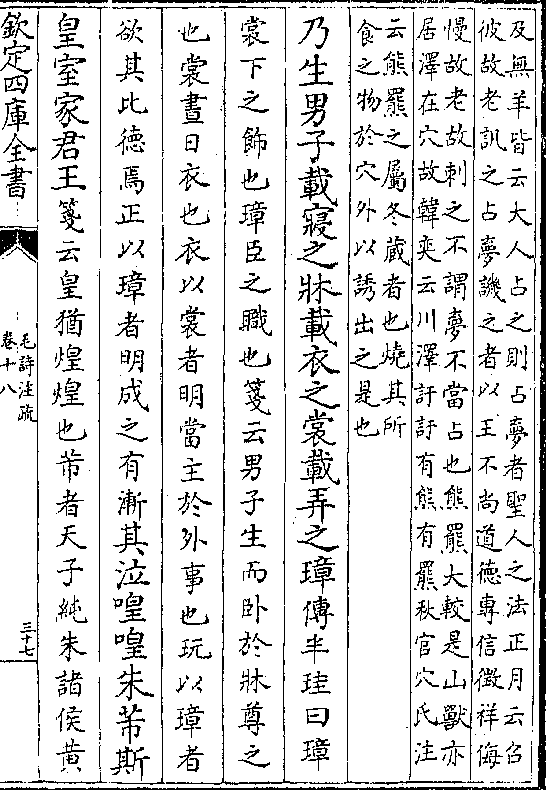 及無羊皆云大人占之則占夢者聖人之法正月云召
彼故老訊之占夢譏之者以王不尚道德専信徴祥侮
慢故老故刺之不謂夢不當占也熊羆大較是山獸亦
居澤在穴故韓奕云川澤訏訏有熊有羆秋官穴氏注
云熊羆之屬冬蔵者也燒其所
食之物於穴外以誘出之是也
乃生男子載寢之牀載衣之裳載弄之璋傳半珪曰璋
裳下之飾也璋臣之職也箋云男子生而卧於牀尊之
也裳晝日衣也衣以裳者明當主於外事也玩以璋者
欲其比徳焉正以璋者明成之有漸其泣喤喤朱芾斯
皇室家君王箋云皇猶煌煌也芾者天子純朱諸侯黄
欽定四庫全書
毛詩注疏
卷十八
三十七